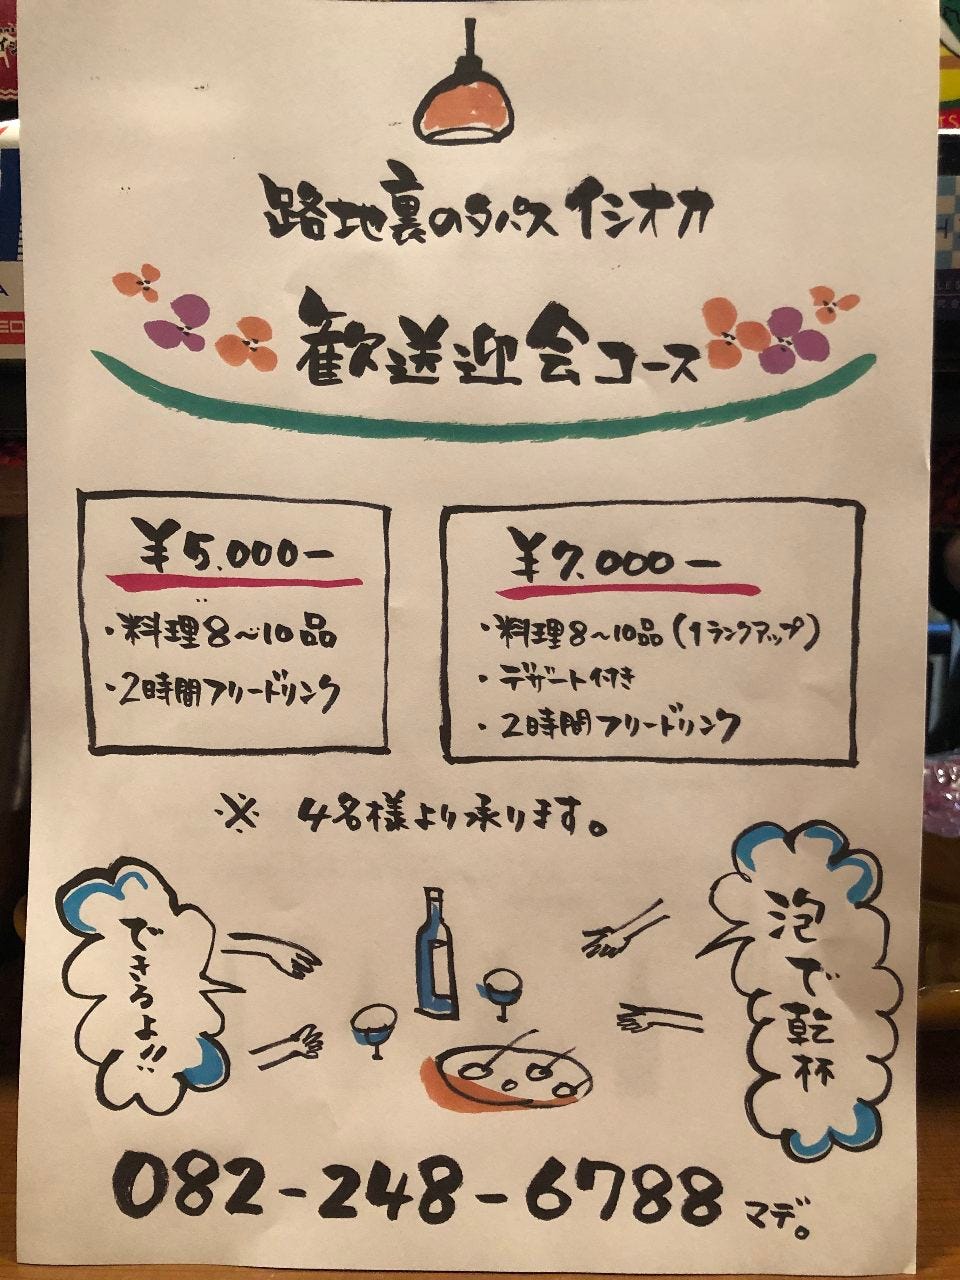 路地裏のタパス イシオカ
歓送迎会コース
¥5,000ー
・料理8〜10品
・2時間フリードリンク
¥7,000ー
・料理8〜10品(1ランクアップ)
・デザート付き
・2時間フリードリンク
※ 4名様より承ります。
できるよ!!
泡で乾杯
082-248-6788 マデ。